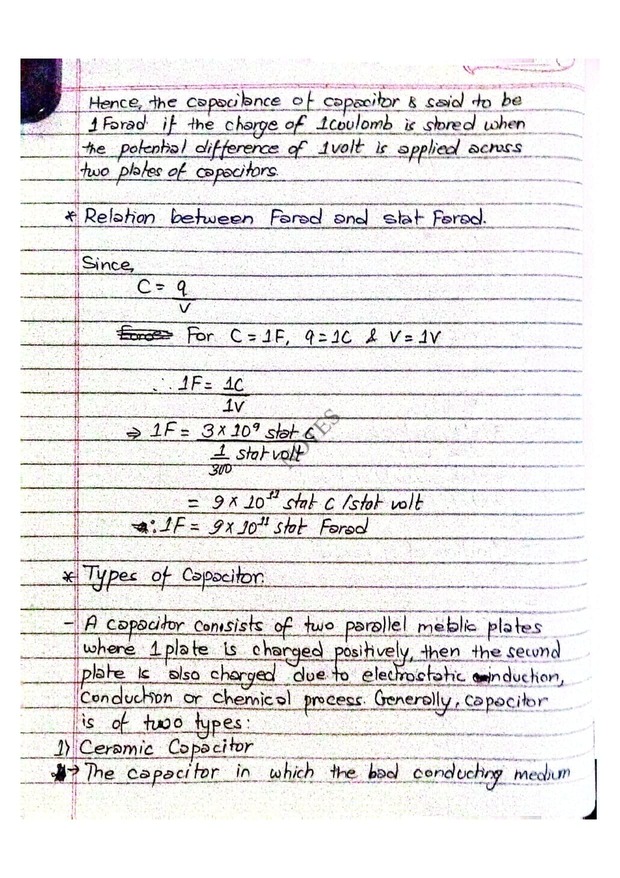 Hence, the capacitance of capacitor & said to be
1 Farad if the charge of 1 coulomb is stored when
the potential difference of 1 volt is applied across
two plates of capacitors.
* Relation between Farad and stat Farad.
Since,
C = q
V
For C = 1F, q = 1C & V = 1V
∴ 1F = 1C
1V
⇒ 1F = 3 × 10⁹ stat C
1 stat volt
300
NOTES
= 9 × 10¹¹ stat C / stat volt
∴ 1F = 9 × 10¹¹ stat Farad
* Types of Capacitor.
- A capacitor consists of two parallel metallic plates
where 1 plate is charged positively, then the second
plate is also charged due to electrostatic induction,
conduction or chemical process. Generally, capacitor
is of two types:
1) Ceramic Capacitor
→ The capacitor in which the bad conducting medium